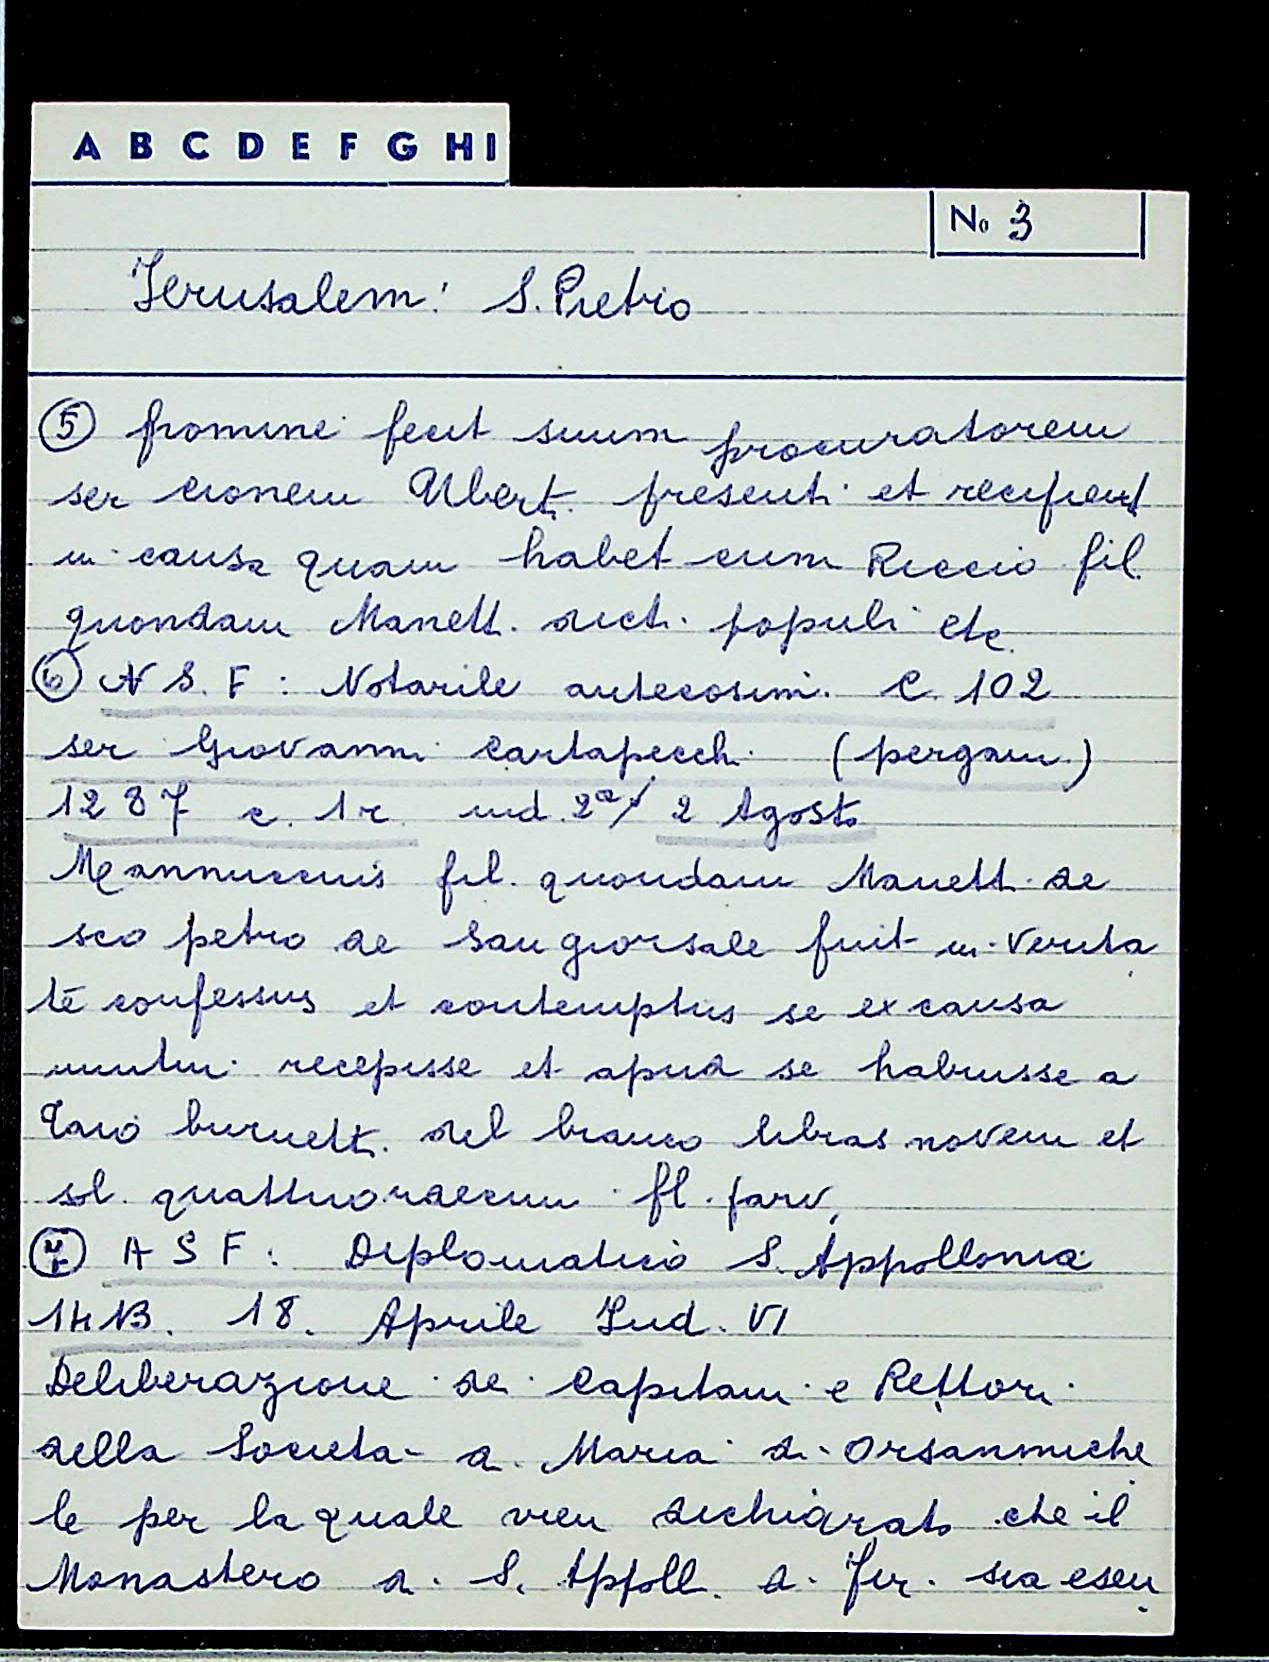 A B C D E F G H I
No 3
Jerusalem: S. Pietro
5 promine fecit suum procuratorem
ser cionem Ubert. presenti et recipient
in causa quam habet cum Riccio fil.
quondam Manett. dicti populi etc.
6 A S. F: Notarile antecosimi. C. 102
ser Giovanni Cartapecchi (pergam.)
1287 c. 1r ind. 2a/ 2 Agosto
Mannuccius fil. quondam Manett. de
sco petro de San giorsale fuit in verita
te confessus et contemptus se ex causa
mutui recepisse et apud se habuisse a
burnett. del bianco libras novem et
sol. quattuordecim fl. parv.
7 A S F: Diplomatico S. Appollonia
1413. 18. Aprile Ind. VI
Deliberazione dei Capitani e Rettori
della Società d. Maria di Orsanmiche
le per la quale vien dichiarato che il
Monastero d. S. Appoll. d. Jer. sia esen